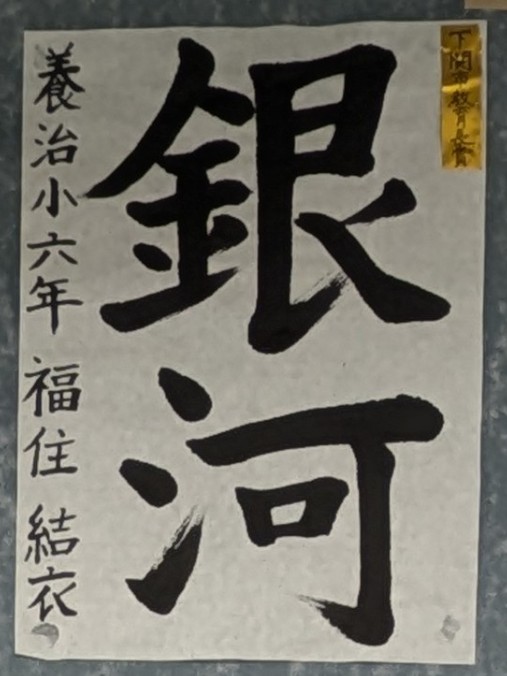 下関市教育長賞
銀河
養治小六年 福住 結衣